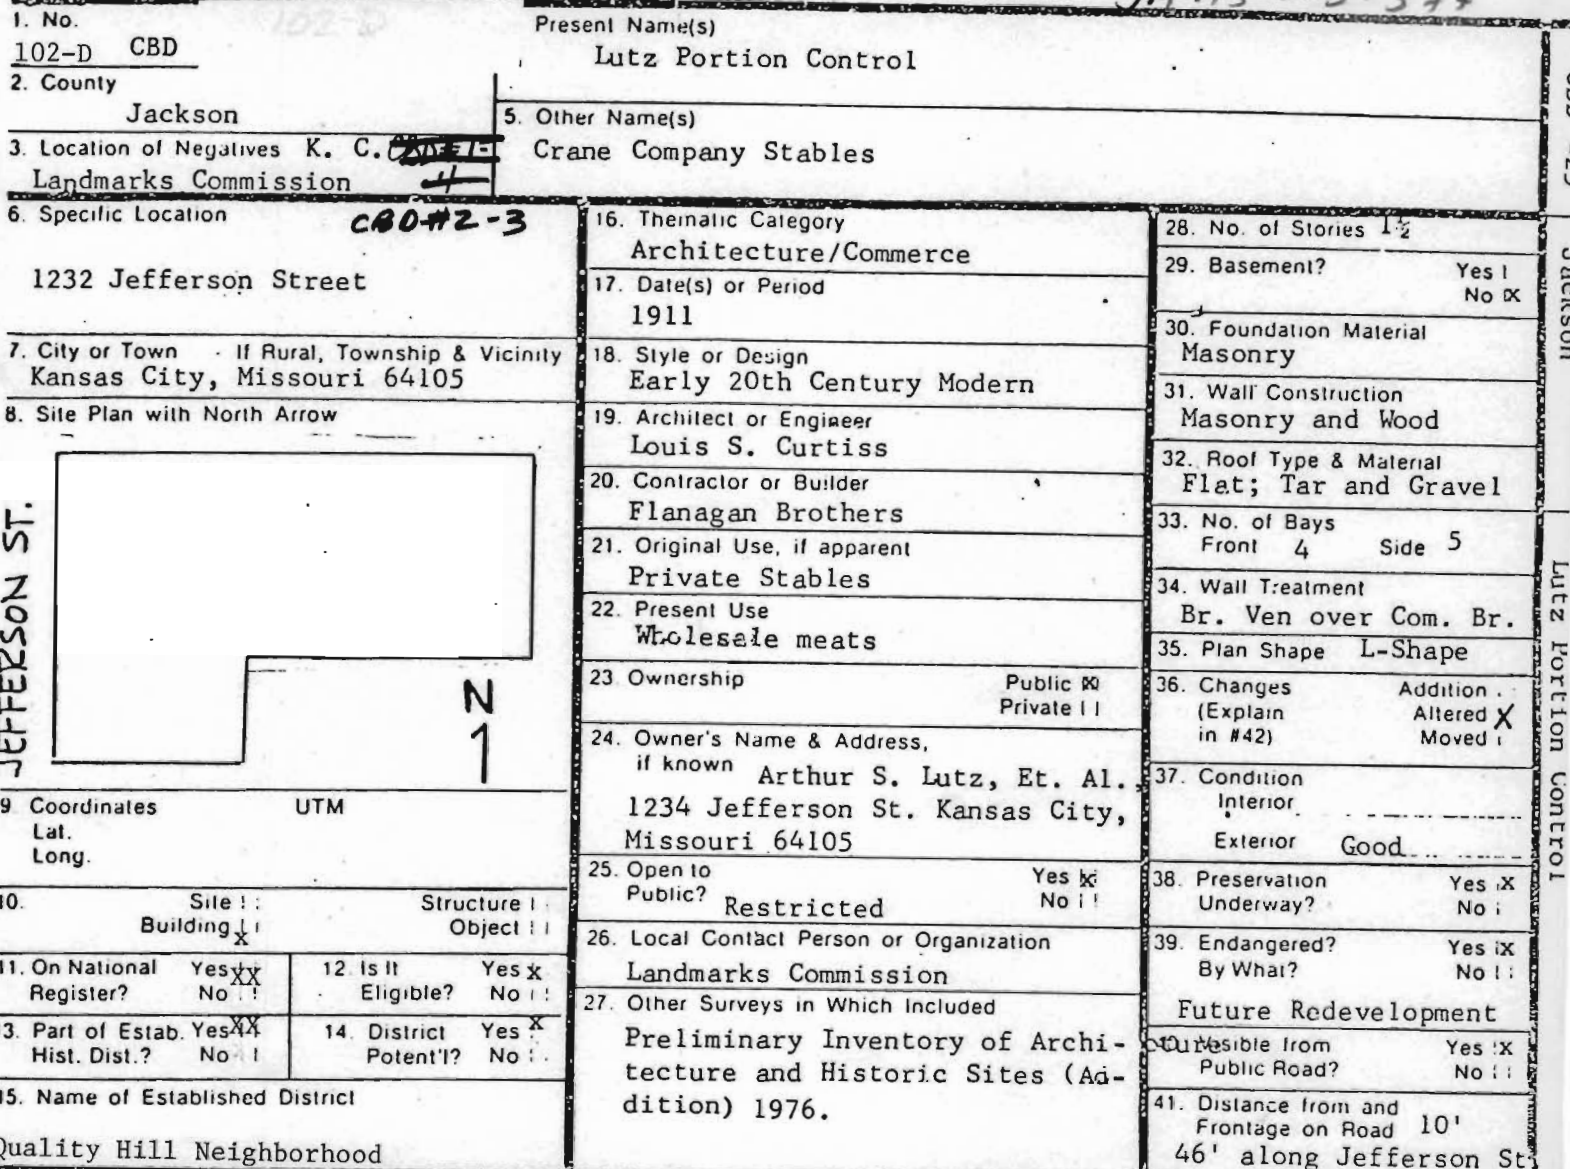 1. No.
102-D CBD
Present Name(s)
Lutz Portion Control
2. County
Jackson
5. Other Name(s)
Crane Company Stables
3. Location of Negatives K. C.
Landmarks Commission
CBD#2-3
6. Specific Location
1232 Jefferson Street
7. City or Town If Rural, Township & Vicinity
Kansas City, Missouri 64105
8. Site Plan with North Arrow
JEFFERSON ST.
N
9 Coordinates UTM
Lat.
Long.
10. Site Structure
Building X Object
11. On National Yes XX
Register? No
12. Is It Yes X
Eligible? No
13. Part of Estab. Yes XX
Hist. Dist.? No
14. District Yes X
Potent'l? No
15. Name of Established District
Quality Hill Neighborhood
16. Thematic Category
Architecture/Commerce
17. Date(s) or Period
1911
18. Style or Design
Early 20th Century Modern
19. Architect or Engineer
Louis S. Curtiss
20. Contractor or Builder
Flanagan Brothers
21. Original Use, if apparent
Private Stables
22. Present Use
Wholesale meats
23. Ownership Public X
Private
24. Owner's Name & Address,
if known Arthur S. Lutz, Et. Al.,
1234 Jefferson St. Kansas City,
Missouri 64105
25. Open to Yes X
Public? No
Restricted
26. Local Contact Person or Organization
Landmarks Commission
27. Other Surveys in Which Included
Preliminary Inventory of Archi-
tecture and Historic Sites (Ad-
dition) 1976.
28. No. of Stories 1½
29. Basement? Yes
No X
30. Foundation Material
Masonry
31. Wall Construction
Masonry and Wood
32. Roof Type & Material
Flat; Tar and Gravel
33. No. of Bays
Front 4 Side 5
34. Wall Treatment
Br. Ven over Com. Br.
35. Plan Shape L-Shape
36. Changes Addition
(Explain Altered X
in #42) Moved
37. Condition
Interior
Exterior Good
38. Preservation Yes X
Underway? No
39. Endangered? Yes X
By What? No
Future Redevelopment
40. Visible from Yes X
Public Road? No
41. Distance from and
Frontage on Road 10'
46' along Jefferson St.
Jackson
Lutz Portion Control